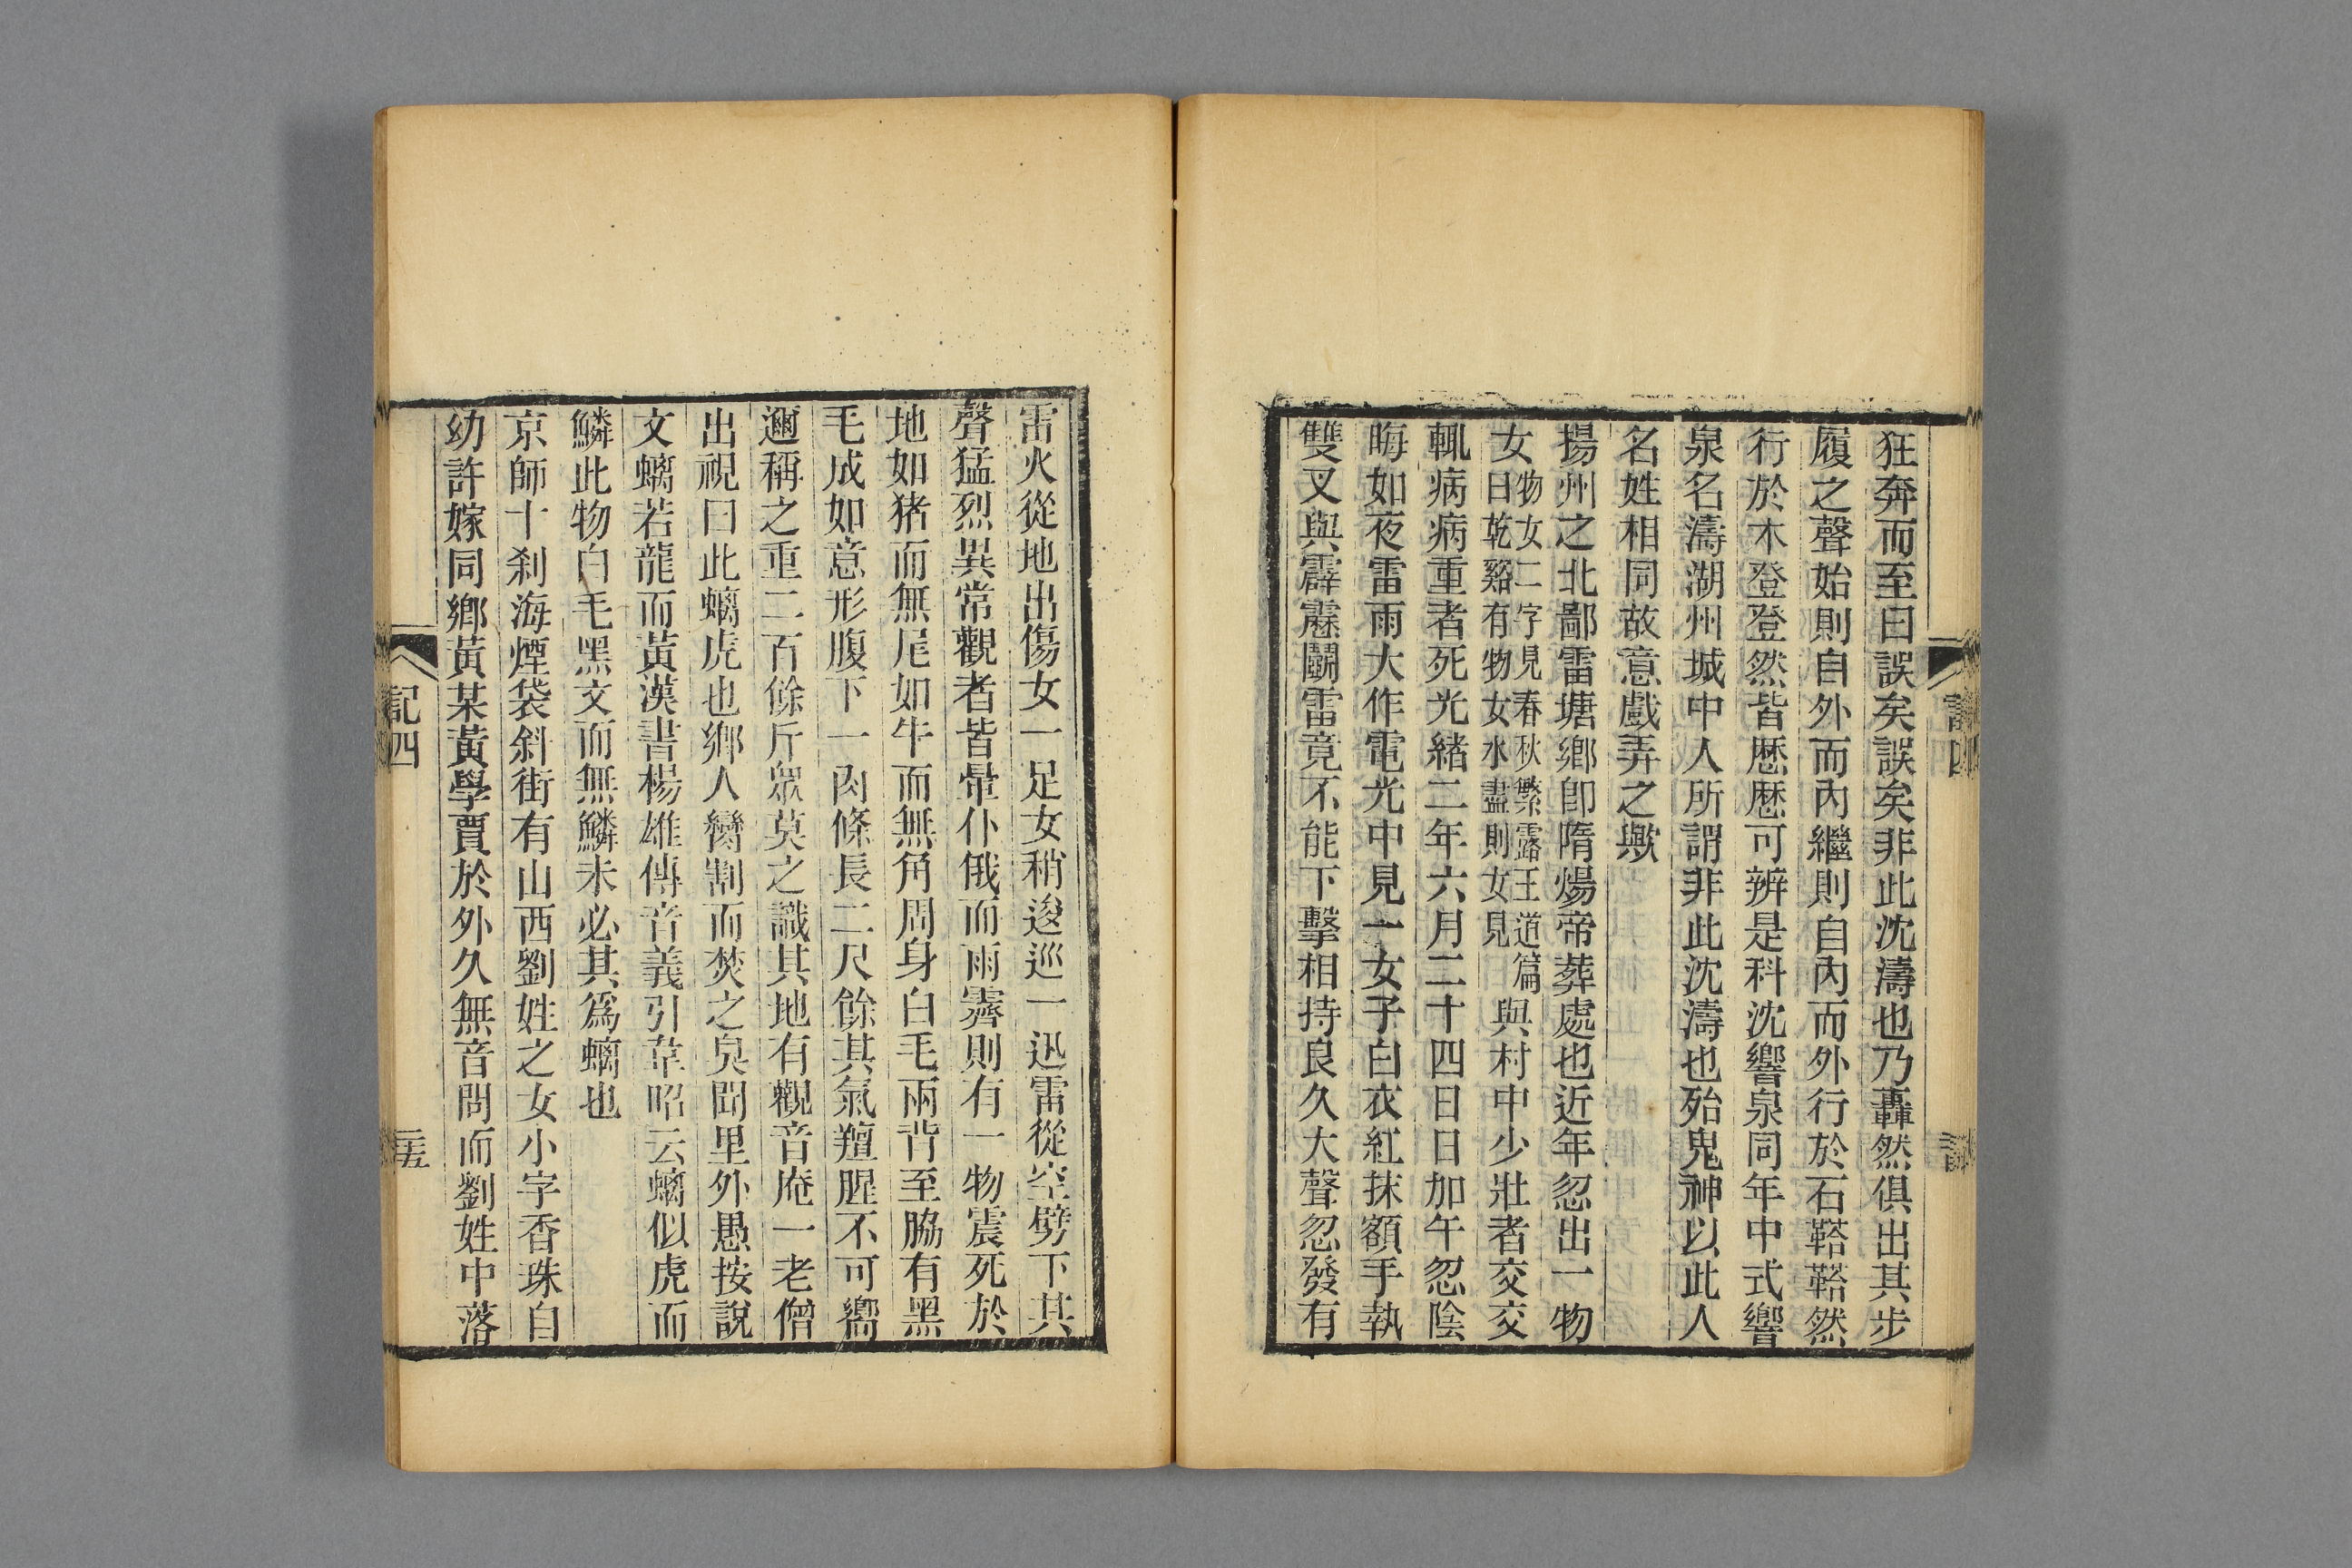 狂奔而至曰誤矣誤矣非此沈濤也乃轟然俱出其步
履之聲始則自外而內繼則自內而外行於石鞳鞳然
行於木登登然皆歷歷可辨是科沈響泉同年中式響
泉名濤湖州城中人所謂非此沈濤也殆鬼神以此人
名姓相同故意戲弄之歟
揚州之北鄙雷塘鄉卽隋煬帝葬處也近年忽出一物
女物女二字見春秋繁露王道篇曰乾谿有物女水盡則女見與村中少壯者交交
輒病病重者死光緒二年六月二十四日日加午忽陰
晦如夜雷雨大作電光中見一女子白衣紅抹額手執
雙叉與霹靂鬭雷竟不能下擊相持良久大聲忽發有
雷火從地出傷女一足女稍逡巡一迅雷從空劈下其
聲猛烈異常觀者皆暈仆俄而雨霽則有一物震死於
地如猪而無尾如牛而無角周身白毛兩背至脇有黑
毛成如意形腹下一肉條長二尺餘其氣羶腥不可嚮
邇稱之重二百餘斤衆莫之識其地有觀音庵一老僧
出視曰此螭虎也鄉人臠割而焚之臭聞里外愚按說
文螭若龍而黃漢書楊雄傳音義引韋昭云螭似虎而
鱗此物白毛黑文而無鱗未必其爲螭也
京師十刹海煙袋斜街有山西劉姓之女小字香珠自
幼許嫁同鄉黃某黃學賈於外久無音問而劉姓中落
記四
二十五